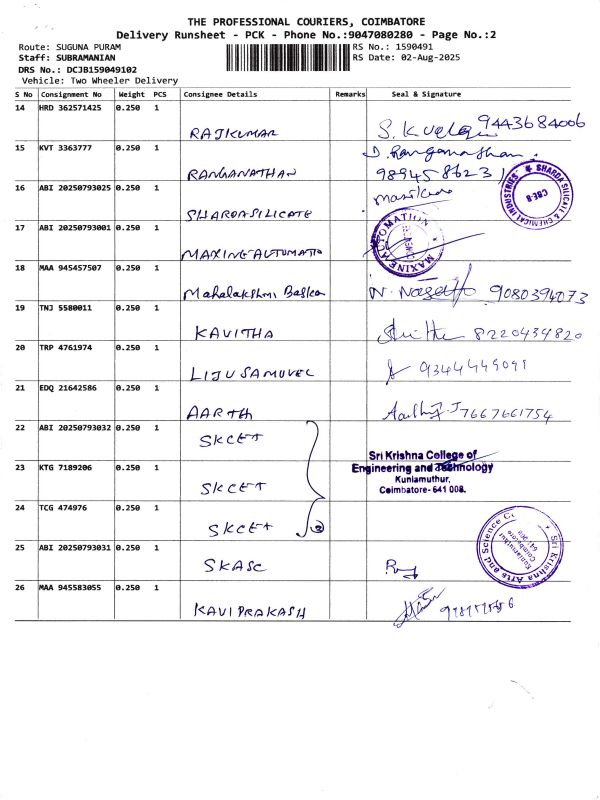 THE PROFESSIONAL COURIERS, COIMBATORE
Delivery Runsheet - PCK - Phone No.:9047080280 - Page No.:2
Route: SUGUNA PURAM
RS No.: 1590491
Staff: SUBRAMANIAN
RS Date: 02-Aug-2025
DRS No.: DCJB159049102
Vehicle: Two Wheeler Delivery
S No Consignment No Weight PCS Consignee Details Remarks Seal & Signature
14 HRD 362571425 0.250 1 RAJKUMAR 9443684006
15 KVT 3363777 0.250 1 RANGANATHAN D. Ranganathan
9894586231
16 ABI 20250793025 0.250 1 SHARDASILICATE
SHARDA SILICATE & CHEMICAL INDUSTRIES CBE-8
17 ABI 20250793001 0.250 1 MAXINE AUTOMATIO
MAXINE AUTOMATION
18 MAA 945457507 0.250 1 Mahalakshmi Baskar 9080394073
19 TNJ 5580011 0.250 1 KAVITHA 8220434820
20 TRP 4761974 0.250 1 LIJU SAMUVEL 9344449091
21 EDQ 21642586 0.250 1 AARTH Aarthy.J 7667661754
22 ABI 20250793032 0.250 1 SKCET
Sri Krishna College of
Engineering and Technology
Kuniamuthur,
Coimbatore- 641 008.
23 KTG 7189206 0.250 1 SKCET
24 TCG 474976 0.250 1 SKCET
25 ABI 20250793031 0.250 1 SKASC
Sri Krishna Arts and Science
Kuniamuthur
Coimbatore
26 MAA 945583055 0.250 1 KAVIPRAKASH